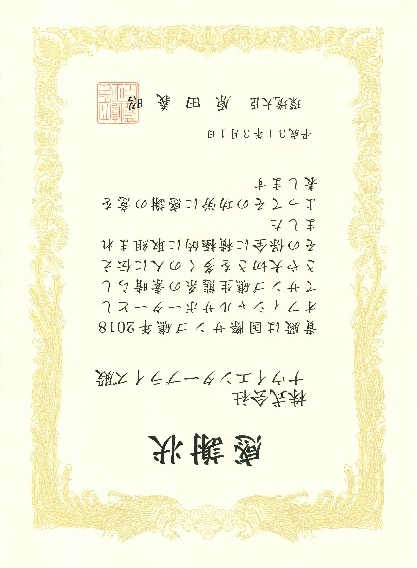 感謝状
株式会社
ナウイエンタープライズ殿
貴殿は国際サンゴ礁年2018
オフィシャルサポーターとし
てサンゴ礁生態系の素晴らし
さや大切さを多くの人に伝え
その保全に積極的に取組まれ
ました
よってその功労に感謝の意を
表します
平成31年3月1日
環境大臣 原田義昭